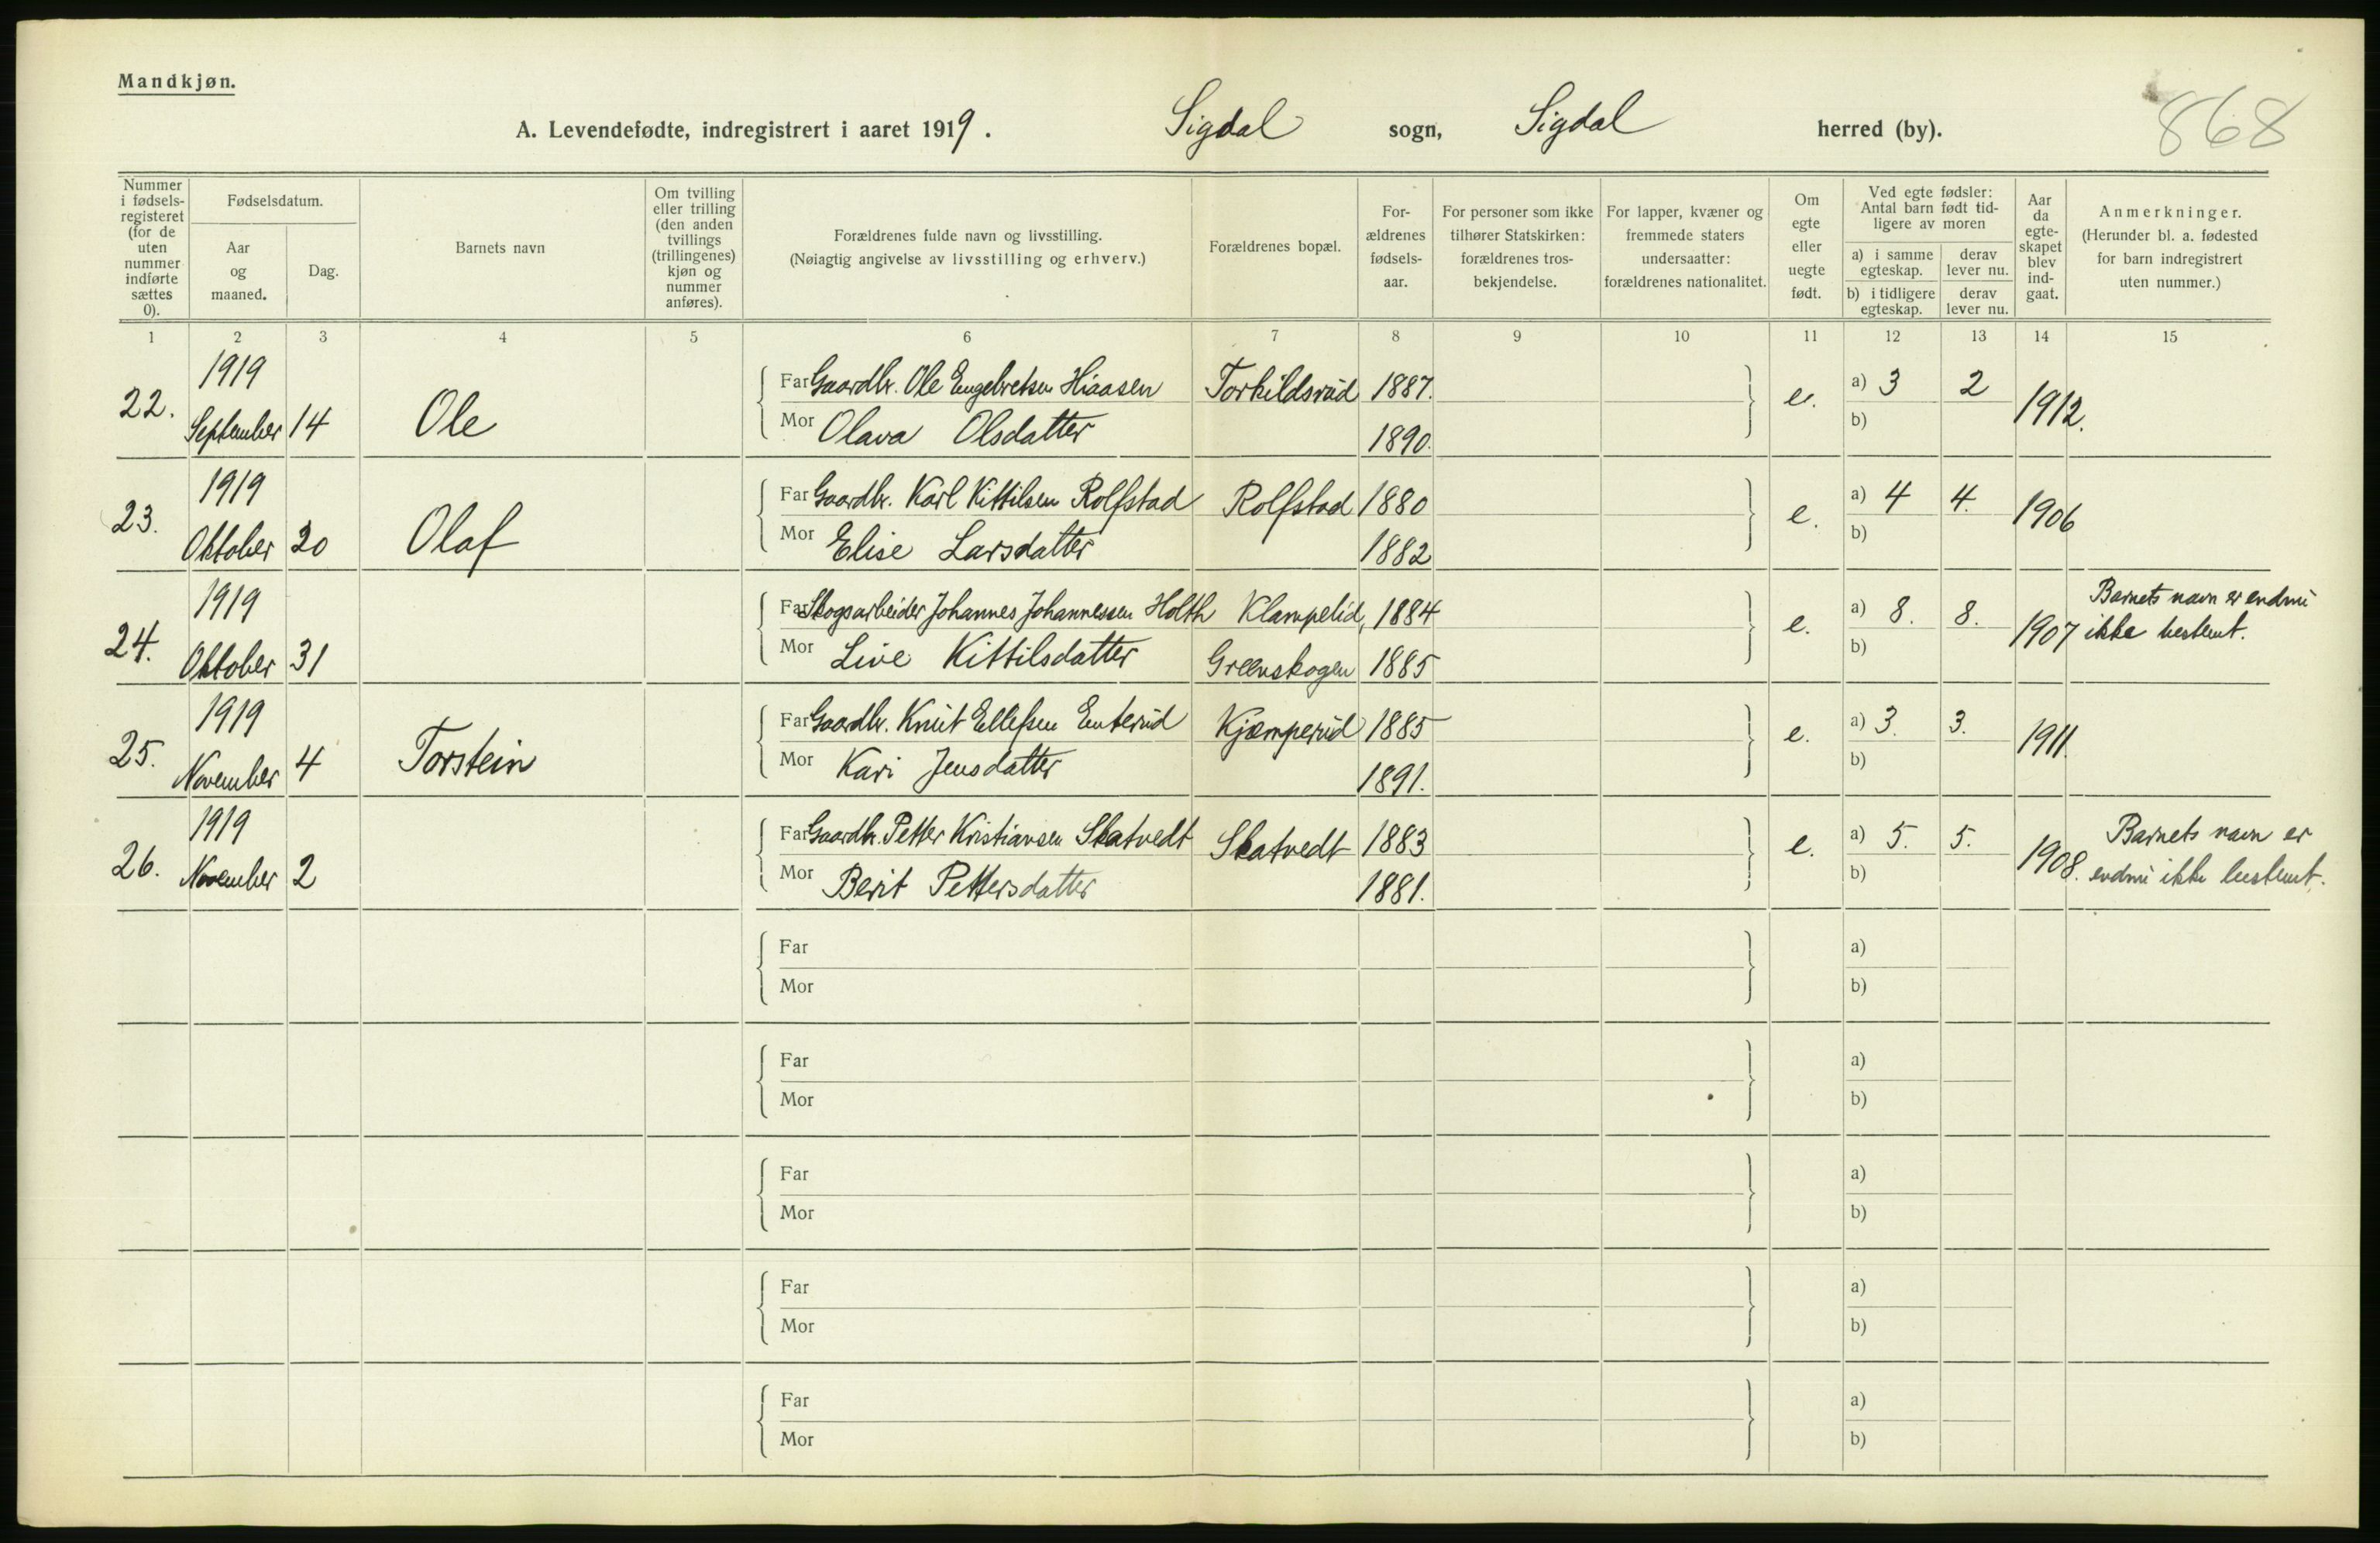 Mandkjøn.
A. Levendefødte, indregistrert i aaret 1919. Sigdal sogn, Sigdal herred (by). 868
Nummer i fødsels-registeret (for de uten nummer indførte sættes 0).
Fødselsdatum.
Aar og maaned.
Dag.
Barnets navn
Om tvilling eller trilling (den anden tvillings (trillingenes) kjøn og nummer anføres).
Forældrenes fulde navn og livsstilling.
(Nøiagtig angivelse av livsstilling og erhverv.)
Forældrenes bopæl.
For-ældrenes fødsels-aar.
For personer som ikke tilhører Statskirken: forældrenes tros-bekjendelse.
For lapper, kvæner og fremmede staters undersaatter: forældrenes nationalitet.
Om egte eller uegte født.
Ved egte fødsler: Antal barn født tid-ligere av moren
a) i samme egteskap.
derav lever nu.
b) i tidligere egteskap.
derav lever nu.
Aar da egte-skapet blev ind-gaat.
Anmerkninger.
(Herunder bl. a. fødested for barn indregistrert uten nummer.)
1 2 3 4 5 6 7 8 9 10 11 12 13 14 15
22. 1919 September 14 Ole
Far Gaardbr. Ole Engebretsen Hiaasen Torkildsrud 1887. e. a) 3 2 1912.
Mor Olava Olsdatter 1890. b)
23. 1919 Oktober 20 Olaf
Far Gaardbr. Karl Kittilsen Rolfstad Rolfstad 1880 e. a) 4 4. 1906
Mor Elise Larsdatter 1882 b)
24. 1919 Oktober 31
Far Skogsarbeider Johannes Johannessen Holth Klampelid, 1884 e. a) 8. 8. 1907 Barnets navn er endnu
Mor Live Kittilsdatter Greenskogen 1885 b) ikke bestemt.
25. 1919 November 4 Torstein
Far Gaardbr. Knut Ellefsen Enterud Kjæmperud 1885 e. a) 3. 3. 1911.
Mor Kari Jensdatter 1891. b)
26. 1919 November 2
Far Gaardbr. Petter Kristiansen Skatvedt Skatvedt 1883 e. a) 5. 5. 1908. Barnets navn er
Mor Berit Pettersdatter 1881. b) endnu ikke bestemt.
Far a)
Mor b)
Far a)
Mor b)
Far a)
Mor b)
Far a)
Mor b)
Far a)
Mor b)